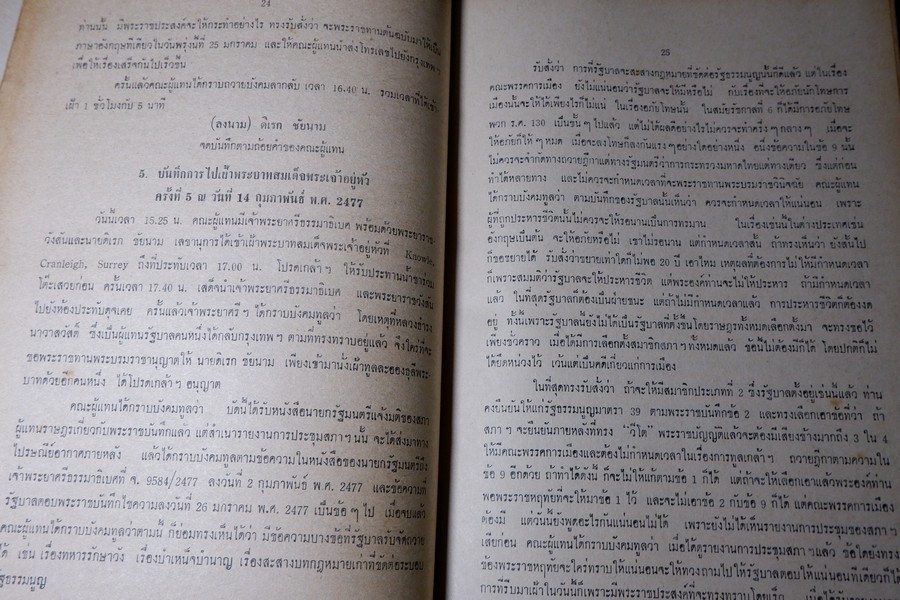 24
ท่านนั้น มีพระราชประสงค์จะให้กระทำอย่างไร ทรงรับสั่งว่า จะพระราชทานต้นฉบับมาให้เป็น
ภาษาอังกฤษทีเดียวในวันพรุ่งนี้ที่ 25 มกราคม และให้คณะผู้แทนนำส่งโทรเลขไปยังกรุงเทพฯ
เพื่อให้เรื่องเสร็จกันไปเร็วขึ้น
ครั้นแล้วคณะผู้แทนได้กราบถวายบังคมลากลับ เวลา 16.40 น. รวมเวลาที่ได้เข้า
เฝ้า 1 ชั่วโมงกับ 5 นาที
(ลงนาม) ดิเรก ชัยนาม
จดบันทึกตามถ้อยคำของคณะผู้แทน
5. บันทึกการไปเฝ้าพระบาทสมเด็จพระเจ้าอยู่หัว
ครั้งที่ 5 ณ วันที่ 14 กุมภาพันธ์ พ.ศ. 2477
วันนี้เวลา 15.25 น. คณะผู้แทนมีเจ้าพระยาศรีธรรมาธิเบศ พร้อมด้วยพระยาราช
วังสันและนายดิเรก ชัยนาม เลขานุการได้เข้าเฝ้าพระบาทสมเด็จพระเจ้าอยู่หัวที่ Knowle,
Cranleigh, Surrey ถึงที่ประทับเวลา 17.00 น. โปรดเกล้าฯ ให้รับประทานน้ำชาร่วม
โต๊ะเสวยก่อน ครั้นเวลา 17.40 น. เสด็จนำเจ้าพระยาศรีธรรมาธิเบศ และพระยาราชวังสัน
ไปยังห้องประทับดุจเคย ครั้นแล้วเจ้าพระยาศรีฯ ได้กราบบังคมทูลว่า โดยเหตุที่หลวงธำรง
นาวาสวัสดิ์ ซึ่งเป็นผู้แทนรัฐบาลคนหนึ่งได้กลับกรุงเทพฯ ตามที่ทรงทราบอยู่แล้ว จึงใคร่ที่จะ
ขอพระราชทานพระบรมราชานุญาตให้ นายดิเรก ชัยนาม เพียงเข้ามานั่งเฝ้าทูลละอองธุลีพระ-
บาทด้วยอีกคนหนึ่ง ได้โปรดเกล้าฯ อนุญาต
คณะผู้แทนได้กราบบังคมทูลว่า บัดนี้ได้รับหนังสือนายกรัฐมนตรีแจ้งมติของสภา
ผู้แทนราษฎรเกี่ยวกับพระราชบันทึกแล้ว แต่สำเนารายงานการประชุมสภาฯ นั้น จะได้ส่งมาทาง
ไปรษณีย์อากาศภายหลัง แล้วได้กราบบังคมทูลตามข้อความในหนังสือของนายกรัฐมนตรีถึง
เจ้าพระยาศรีธรรมาธิเบศที่ จ. 9584/2477 ลงวันที่ 2 กุมภาพันธ์ พ.ศ. 2477 และข้อความที่
รัฐบาลตอบพระราชบันทึกไขความลงวันที่ 26 มกราคม พ.ศ. 2477 เป็นข้อๆ ไป เมื่อจบแล้ว
คณะผู้แทนได้กราบบังคมทูลว่าตามนี้ ก็ย่อมทรงเห็นได้ว่า มีข้อความบางข้อที่รัฐบาลรับจัดถวาย
ได้ เช่น เรื่องทหารรักษาวัง เรื่องบำเหน็จบำนาญ เรื่องสะสางบทกฎหมายเก่าที่ขัดต่อระบอบ
รัฐธรรมนูญ
25
รับสั่งว่า การที่รัฐบาลจะสะสางกฎหมายที่ขัดต่อรัฐธรรมนูญนั้นก็ดีแล้ว แต่ในเรื่อง
คณะพรรคการเมือง ยังไม่แน่นอนว่ารัฐบาลจะให้มีหรือไม่ กับเรื่องที่จะให้อภัยนักโทษการ
เมืองนั้นจะให้ได้เพียงไรก็ไม่แน่ ในเรื่องอภัยโทษนั้น ในสมัยรัชกาลที่ 6 ก็ได้มีการอภัยโทษ
พวก ร.ศ. 130 เป็นขั้นๆ ไปแล้ว แต่ไม่ได้ผลดีอย่างไรไม่ควรจะทำครึ่งๆ กลางๆ เมื่อจะ
ให้อภัยก็ให้ๆ หมด เมื่อจะลงโทษก็ลงกันแรงๆ อย่างใดอย่างหนึ่ง อนึ่งข้อความในข้อ 9 นั้น
ไม่ควรจะจำกัดทางถวายฎีกาแต่ทางรัฐมนตรีว่าการกระทรวงมหาดไทยแต่ทางเดียว ซึ่งแต่ก่อน
ทำได้หลายทาง และไม่ควรจะกำหนดเวลาที่จะพระราชทานพระบรมราชวินิจฉัย คณะผู้แทน
ได้กราบบังคมทูลว่า ตามบันทึกของรัฐบาลนั้นเห็นว่า ควรจะกำหนดเวลาให้แน่นอน เพราะ
ผู้ที่ถูกประหารชีวิตนั้นไม่ควรจะให้รอนานเป็นการทรมาน ในเรื่องเช่นนี้ในต่างประเทศเช่น
อังกฤษเป็นต้น จะให้อภัยหรือไม่ เขาไม่รอนาน แต่กำหนดเวลาสั้น ถ้าทรงเห็นว่า ยังสั้นไป
ก็ขอขยายได้ รับสั่งว่าขยายเท่าใดก็ไม่พอ 20 ปี เอาไหม เหตุผลที่ต้องการไม่ให้มีกำหนดเวลา
ก็เพราะสมมติว่ารัฐบาลจะให้ประหารชีวิต แต่พระองค์ท่านจะไม่ให้ประหาร ถ้ามีกำหนดเวลา
แล้ว ในที่สุดรัฐบาลก็ต้องเป็นฝ่ายชนะ แต่ถ้าไม่มีกำหนดเวลาแล้ว การประหารชีวิตก็ต้องงด
อยู่ ทั้งนี้เพราะรัฐบาลนี้ยังไม่ได้เป็นรัฐบาลที่ตั้งขึ้นโดยราษฎรทั้งหมดเลือกตั้งมา จะทรงขอไว้
เพียงชั่วคราว เมื่อใดมีการเลือกตั้งสมาชิกสภาฯ ทั้งหมดแล้ว ข้อนี้ไม่ต้องมีก็ได้ โดยปกติก็ไม่
ได้ยึดหน่วงไว้ เว้นแต่เป็นคดีเกี่ยวแก่การเมือง
ในที่สุดทรงรับสั่งว่า ถ้าจะให้มีสมาชิกประเภทที่ 2 ซึ่งรัฐบาลตั้งอยู่เช่นนี้แล้ว ท่าน
คงยืนยันให้แก้รัฐธรรมนูญมาตรา 39 ตามพระราชบันทึกข้อ 2 และทรงเลือกเอาข้อที่ว่า ถ้า
สภาฯ จะยืนยันภายหลังที่ทรง "วีโต้" พระราชบัญญัติแล้วจะต้องมีเสียงข้างมากถึง 3 ใน 4
ให้มีคณะพรรคการเมืองและต้องไม่กำหนดเวลาในเรื่องการทูลเกล้าฯ ถวายฎีกาตามความใน
ข้อ 9 อีกด้วย ถ้าทำได้ดังนี้ ก็จะไม่ให้แก้ตามข้อ 1 ก็ได้ แต่ถ้าจะให้เลือกเอาแล้วพระองค์ท่าน
พอพระราชหฤทัยที่จะให้มาข้อ 1 ไว้ และจะไม่เอาข้อ 2 กับข้อ 9 ก็ได้ แต่คณะพรรคการเมือง
ต้องมี แต่วันนี้ยังพูดอะไรกันแน่นอนไม่ได้ เพราะยังไม่ได้เห็นรายงานการประชุมของสภาฯ
เสียก่อน คณะผู้แทนได้กราบบังคมทูลว่า เมื่อได้ดูรายงานการประชุมสภาฯ แล้ว ข้อใดยังทรง
ข้องพระราชหฤทัยจะใคร่ทราบให้แน่นอนจะให้ทวงถามไปให้รัฐบาลตอบให้แน่นอนทีเดียวก็ได้
การที่รีบมาเฝ้าในวันนี้ก็เพราะมีพระราชประสงค์ที่จะทรงทราบโดยเร็ว